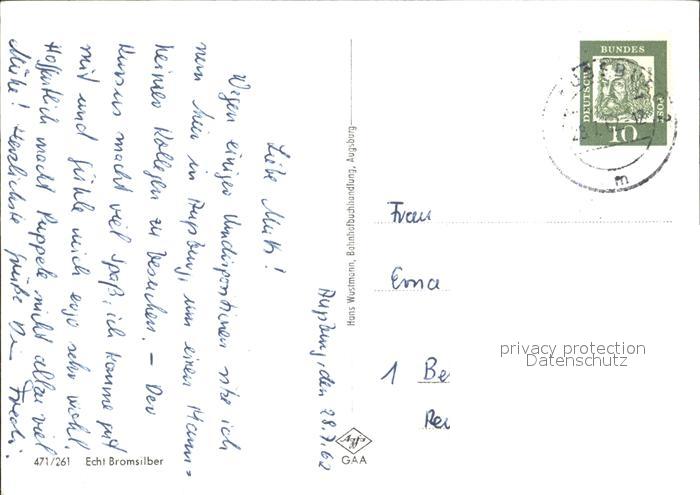 Augsburg, den 28.7.62
Liebe Mutti!
Wegen einiger Umdispositionen sitze ich
nun hier in Augsburg, um einen Mann-
heimer Kollegen zu besuchen. – Der
Kursus macht viel Spaß, ich komme gut
mit und fühle mich also sehr wohl.
Hoffentlich macht Puppele nicht allzu viel
Mühe! Herzlichste Grüße Dein
471/261 Echt Bromsilber
Hans Wustmann, Bahnhofbuchhandlung, Augsburg
Agfa
GAA
DEUTSCHE
BUNDES
POST
10
m
Frau
Erna
1 Be
privacy protection
Datenschutz